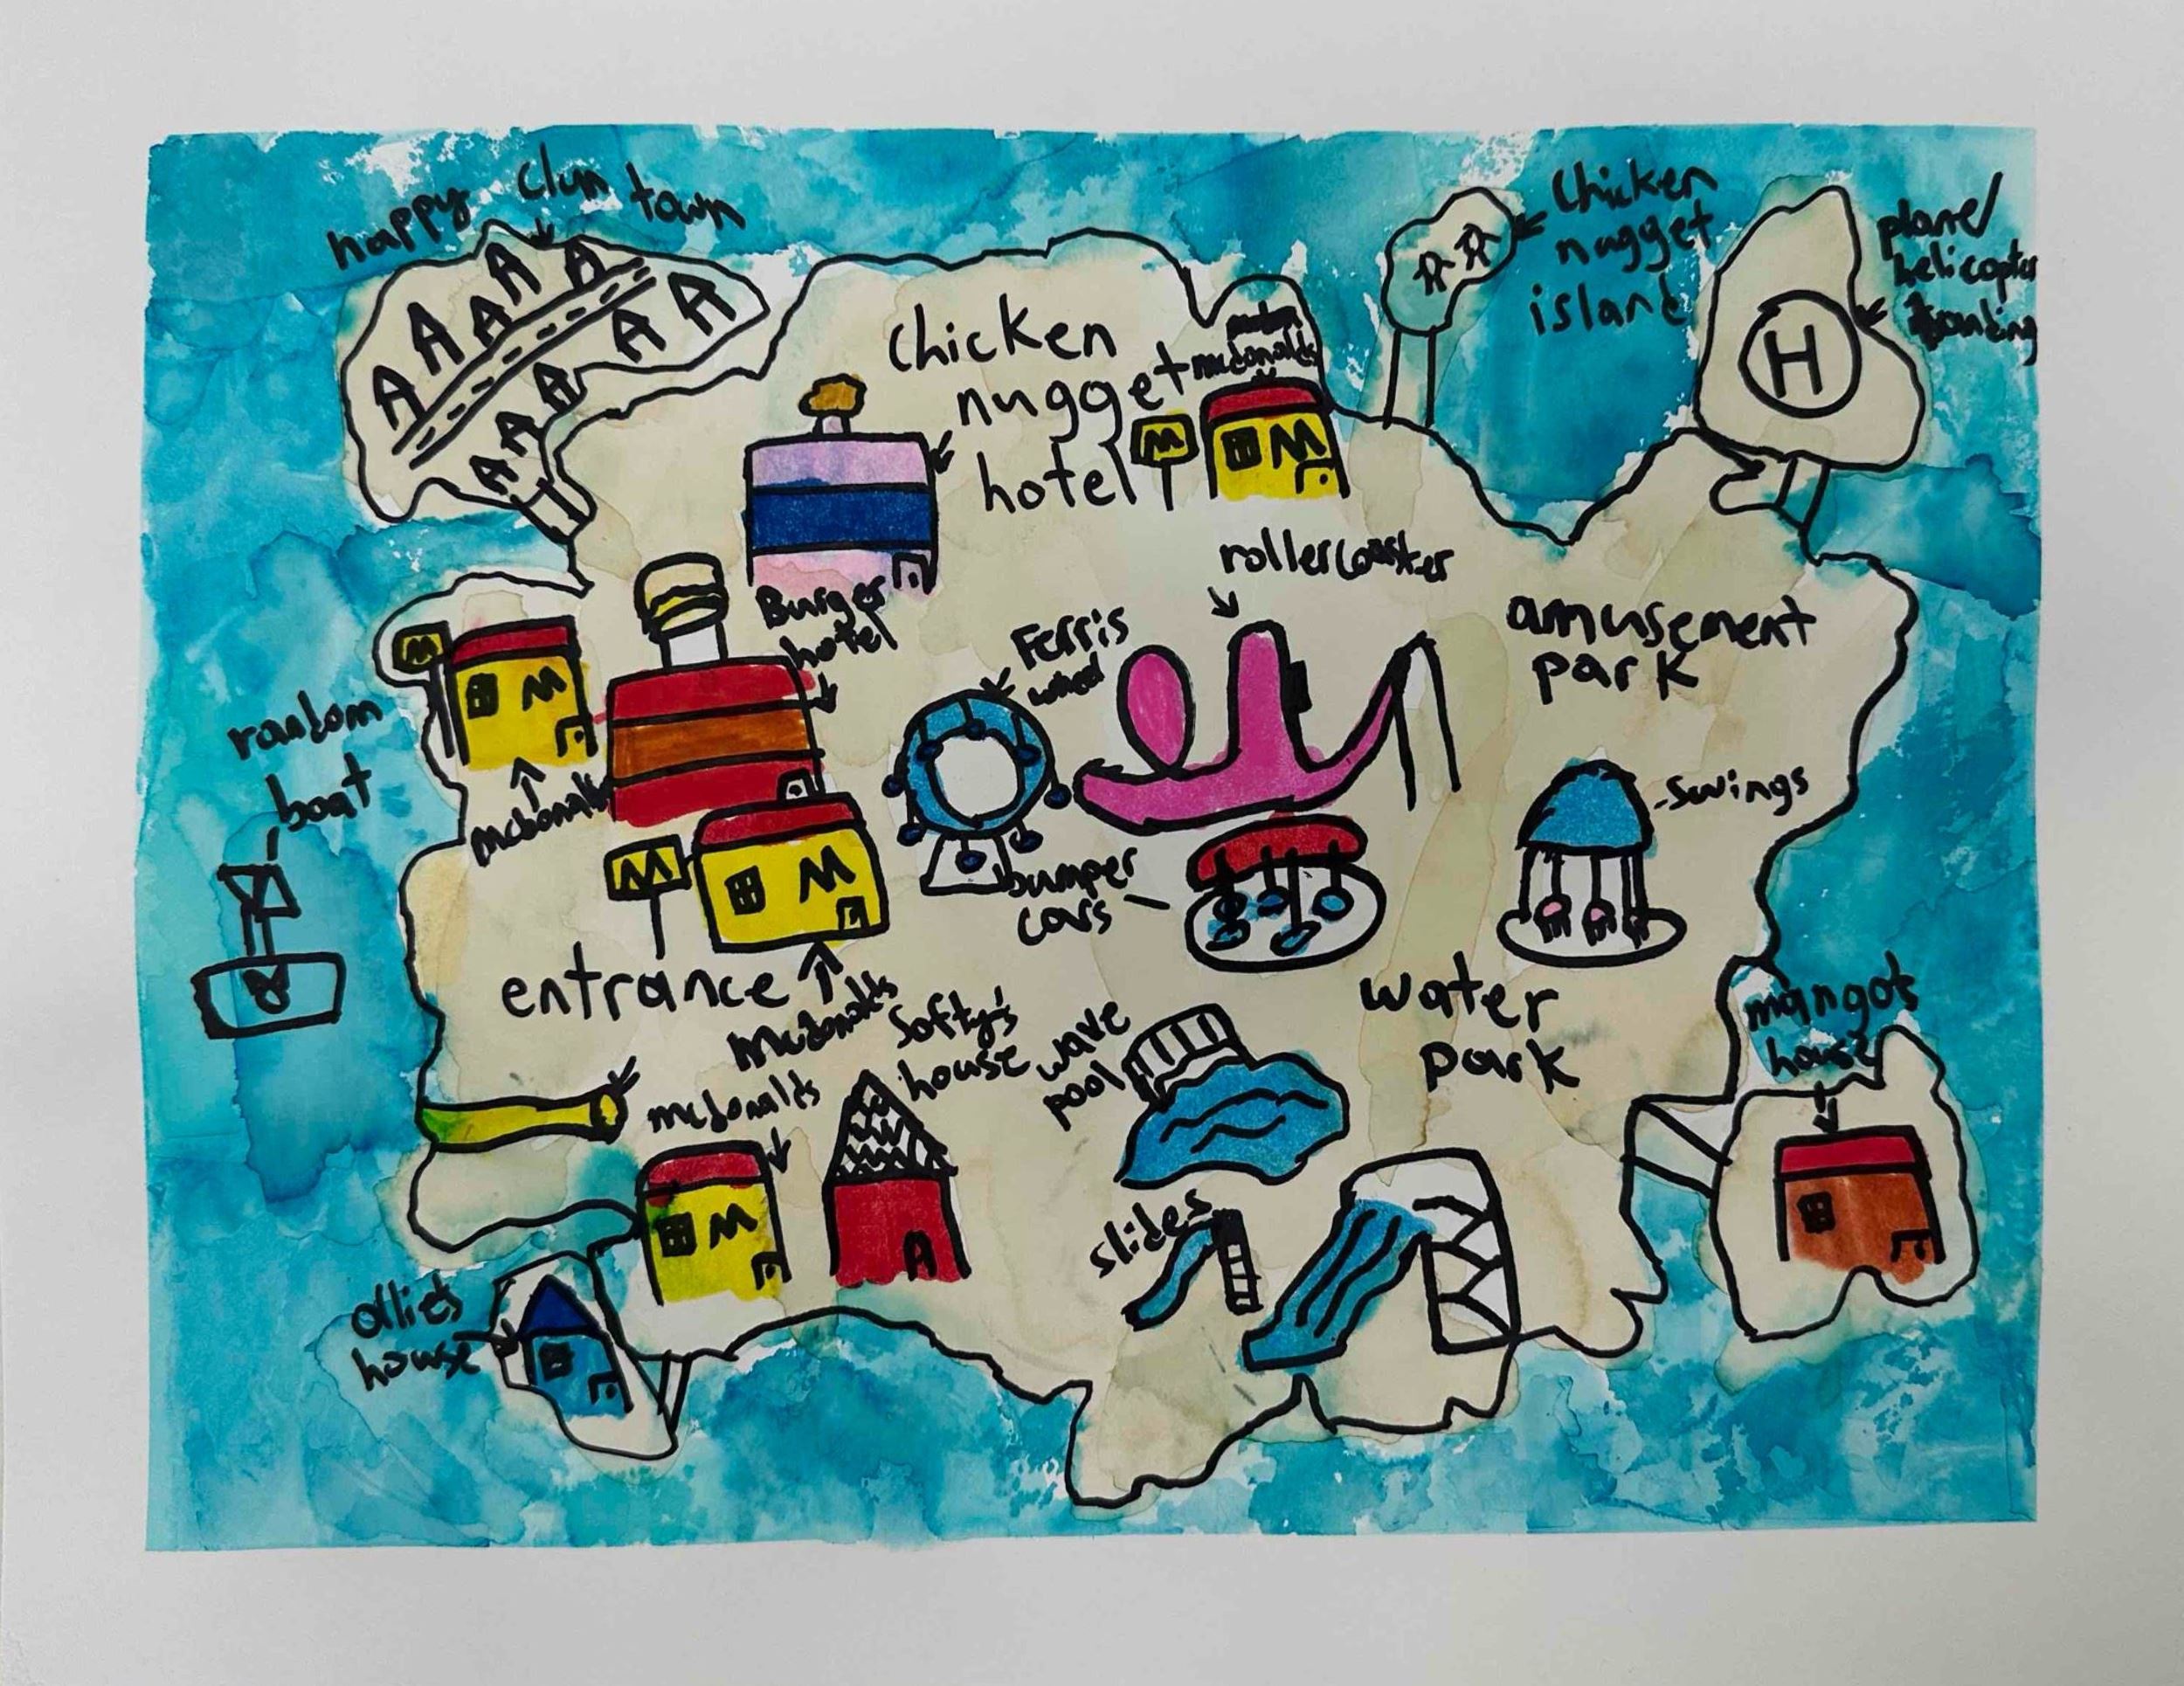 happy clun town
chicken
nugget
island
plane/
helicopter
chicken
nugget
hotel
mcdonalds
M
M
H
rollercoaster
amusement
park
Burger
hotel
Ferris
wheel
M
M
mcdonalds
random
boat
swings
M
M
bumper
cars
entrance
mcdonalds
water
park
mango's
house
softy's
house
wave
pool
mcdonalds
M
slides
ollie's
house